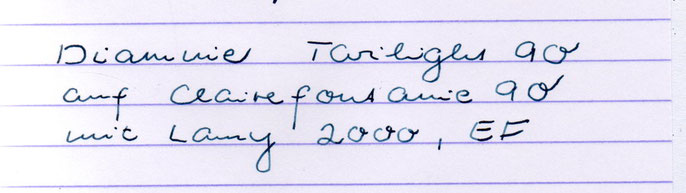 Diamine Twilight 90
auf Clairefontaine 90
mit Lamy 2000, EF